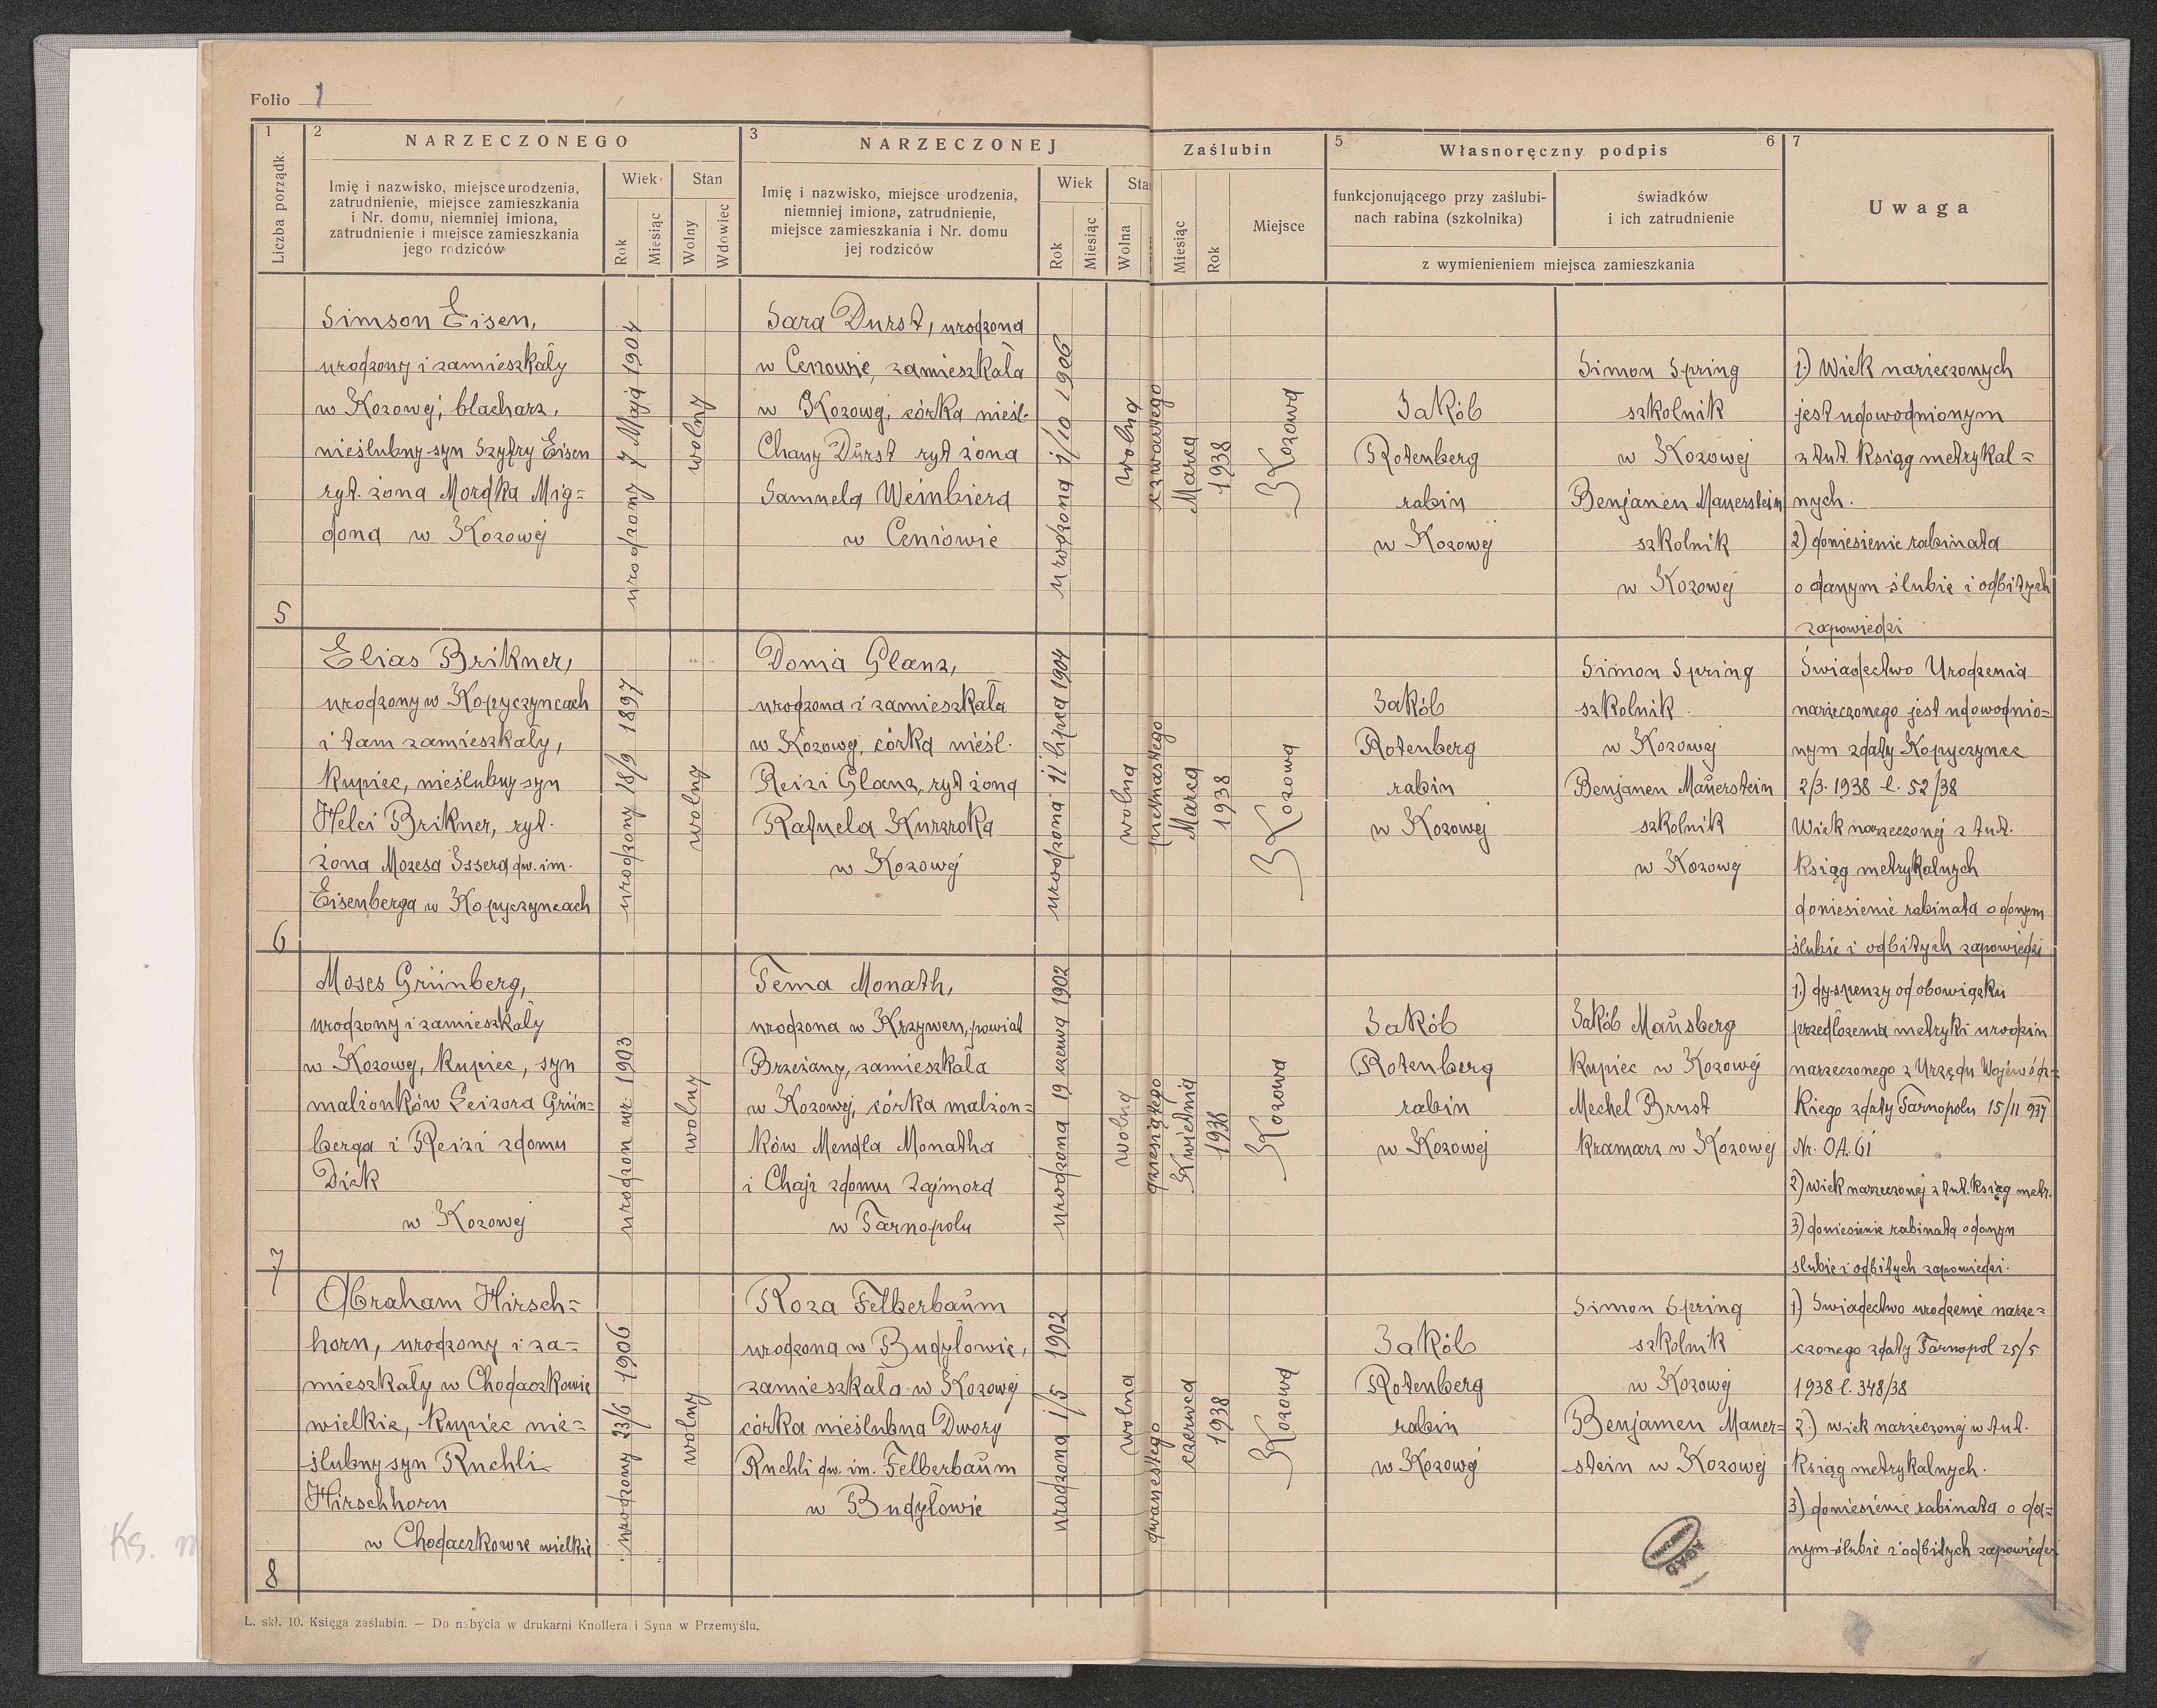 Folio 1
1
Liczba porządk.
2
NARZECZONEGO
Imię i nazwisko, miejsce urodzenia,
zatrudnienie, miejsce zamieszkania
i Nr. domu, niemniej imiona,
zatrudnienie i miejsce zamieszkania
jego rodziców
Wiek
Rok
Miesiąc
Stan
Wolny
Wdowiec
3
NARZECZONEJ
Imię i nazwisko, miejsce urodzenia,
niemniej imiona, zatrudnienie,
miejsce zamieszkania i Nr. domu
jej rodziców
Wiek
Rok
Miesiąc
Sta
Wolna
Zaślubin
Miesiąc
Rok
Miejsce
5
Własnoręczny podpis
6
funkcjonującego przy zaślubi-
nach rabina (szkolnika)
świadków
i ich zatrudnienie
z wymienieniem miejsca zamieszkania
7
Uwaga
5
Simson Eisen,
urodzony i zamieszkały
w Kozowej, blacharz,
nieślubny syn Szyfry Eisen
ryt. żona Mordka Mig=
dona w Kozowej
urodzony 7 Maja 1904
wolny
Sara Durst, urodzona
w Ceniowie, zamieszkała
w Kozowej, córka nieśl.
Chany Dürst ryt żona
Samuela Weinbiera
w Ceniowie
urodzona 1/10 1906
wolna
czwartego
Marca
1938
Kozowa
Jakób
Rotenberg
rabin
w Kozowej
Simon Spring
szkolnik
w Kozowej
Benjamen Mauerstein
szkolnik
w Kozowej
1.) Wiek narzeczonych
jest udowodnionym
z tut. ksiąg metrykal=
nych.
2) doniesienie rabinata
o danym ślubie i odbitych
zapowiedzi
6
Elias Brikner,
urodzony w Kopyczyncach
i tam zamieszkały,
kupiec, nieślubny syn
Helci Brikner, ryt.
żona Mozesa Issera dw. im.
Eisenberga w Kopyczyncach
urodzony 18/9 1897
wolny
Donia Glanz,
urodzona i zamieszkała
w Kozowej, córka nieśl.
Reizi Glanz, ryt żona
Rafaela Kurzroka
w Kozowej
urodzona 11 lipca 1904
wolna
piętnastego
Marca
1938
Kozowa
Jakób
Rotenberg
rabin
w Kozowej
Simon Spring
szkolnik
w Kozowej
Benjamen Mauerstein
szkolnik
w Kozowej
Świadectwo Urodzenia
narzeczonego jest udowodnio=
nym z daty Kopyczynce
2/3. 1938 l. 52/38
Wiek narzeczonej z tut.
ksiąg metrykalnych
doniesienie rabinata o danym
ślubie i odbitych zapowiedzi
7
Moses Grünberg,
urodzony i zamieszkały
w Kozowej, kupiec, syn
małżonków Leizora Grün=
berga i Reizi z domu
Dick
w Kozowej
urodzon wr. 1903
wolny
Tema Monath,
urodzona w Krzywen, powiat
Brzeżany, zamieszkała
w Kozowej, córka małżon=
ków Mendla Monatha
i Chaji z domu Zajmora
w Tarnopolu
urodzona 19 czerwca 1902
wolna
dziesiątego
Kwietnia
1938
Kozowa
Jakób
Rotenberg
rabin
w Kozowej
Jakób Mausberg
kupiec w Kozowej
Mechel Brust
kramarz w Kozowej
1.) dyspenzy od obowiązku
przedłożenia metryki urodzin
narzeczonego z Urzędu Wojewódz=
kiego z daty Tarnopolu 15/11 937
Nr. OA. 61
2) wiek narzeczonej z tut. ksiąg metr.
3) doniesienie rabinata o danym
ślubie i odbitych zapowiedzi.
8
Abraham Hirsch=
horn, urodzony i za=
mieszkały w Chodaczkowie
wielkie, kupiec nie=
ślubny syn Ruchli
Hirschhorn
w Chodaczkowie wielkie
urodzony 23/6 1906
wolny
Roza Felberbaum
urodzona w Budyłowie,
zamieszkała w Kozowej
córka nieślubna Dwory
Ruchli dw. im. Felberbaum
w Budyłowie
urodzona 1/5 1902
wolna
dwunastego
czerwca
1938
Kozowa
Jakób
Rotenberg
rabin
w Kozowej
Simon Spring
szkolnik
w Kozowej
Benjamen Mauer=
stein w Kozowej
1) Świadectwo urodzenie narze=
czonego z daty Tarnopol 25/5
1938 l. 348/38
2.) wiek narzeczonej w tut.
ksiąg metrykalnych.
3) doniesienie rabinata o da=
nym ślubie i odbitych zapowiedzi
AGAD
L. skł. 10. Księga zaślubin. — Do nabycia w drukarni Knollera i Syna w Przemyślu.
Ks. m